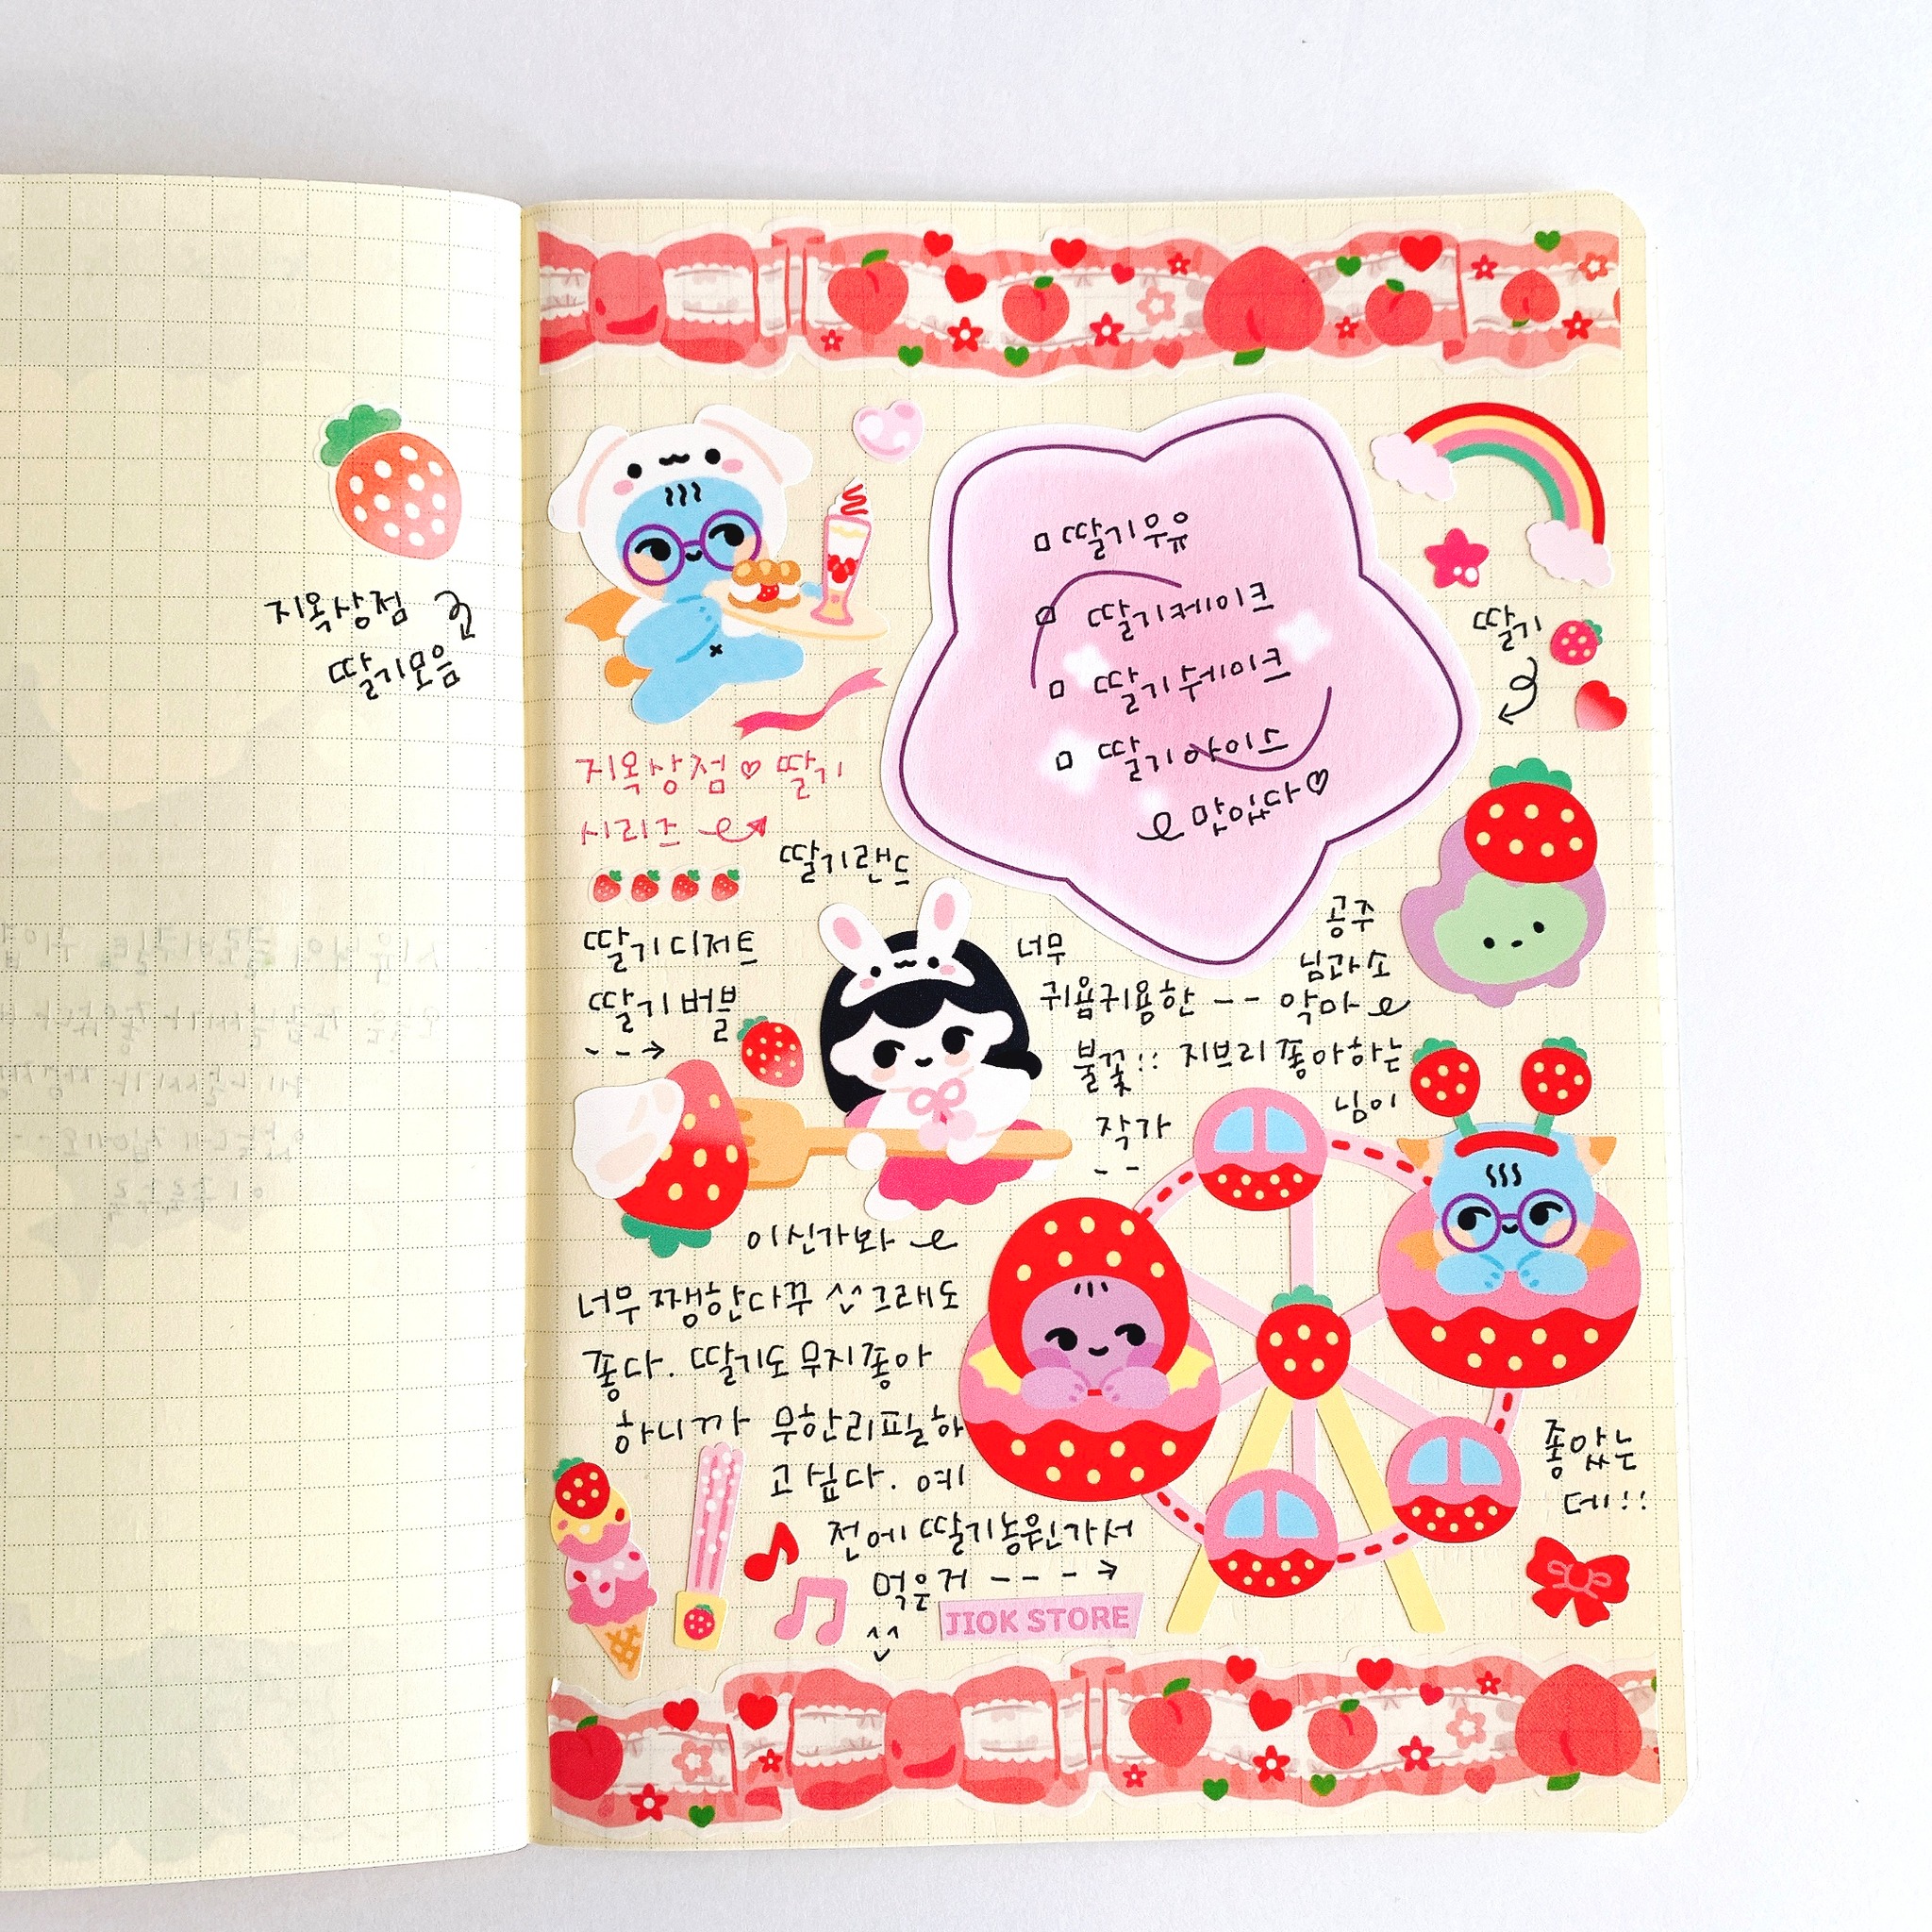 지옥상점
딸기모음
딸기우유
딸기케이크
딸기쉐이크
딸기아이스
맛있다♡
딸기
지옥상점♡딸기
시리즈
딸기랜드
딸기디저트
딸기버블
-->
너무
귀욤귀욤한 --
불꽃!!
공주
님과소
악마
지브리쫗아하는
작가
--
님이
이신가봐
너무쨍한다꾸 ^^ 그래도
쫗다. 딸기도무지쫗아
하니까 무한리필하
고싶다. 예
전에딸기농원가서
먹은거 --->
좋았는
데!!
JIOK STORE